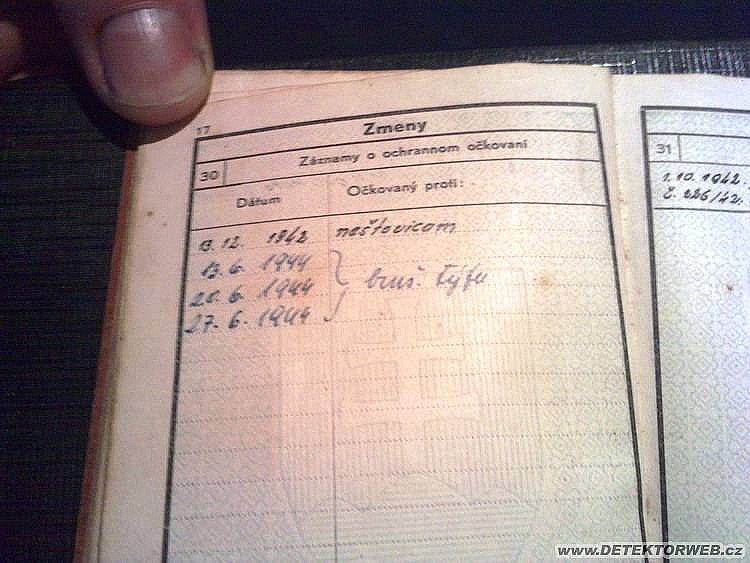 17
Zmeny
30 Záznamy o ochrannom očkovaní
Dátum Očkovaný proti:
13. 12. 1942 neštovicam
13. 6. 1944
20. 6. 1944 bruš. týfu
27. 6. 1944
31
1.10.1942.
č. 226/42.
www.DETEKTORWEB.cz